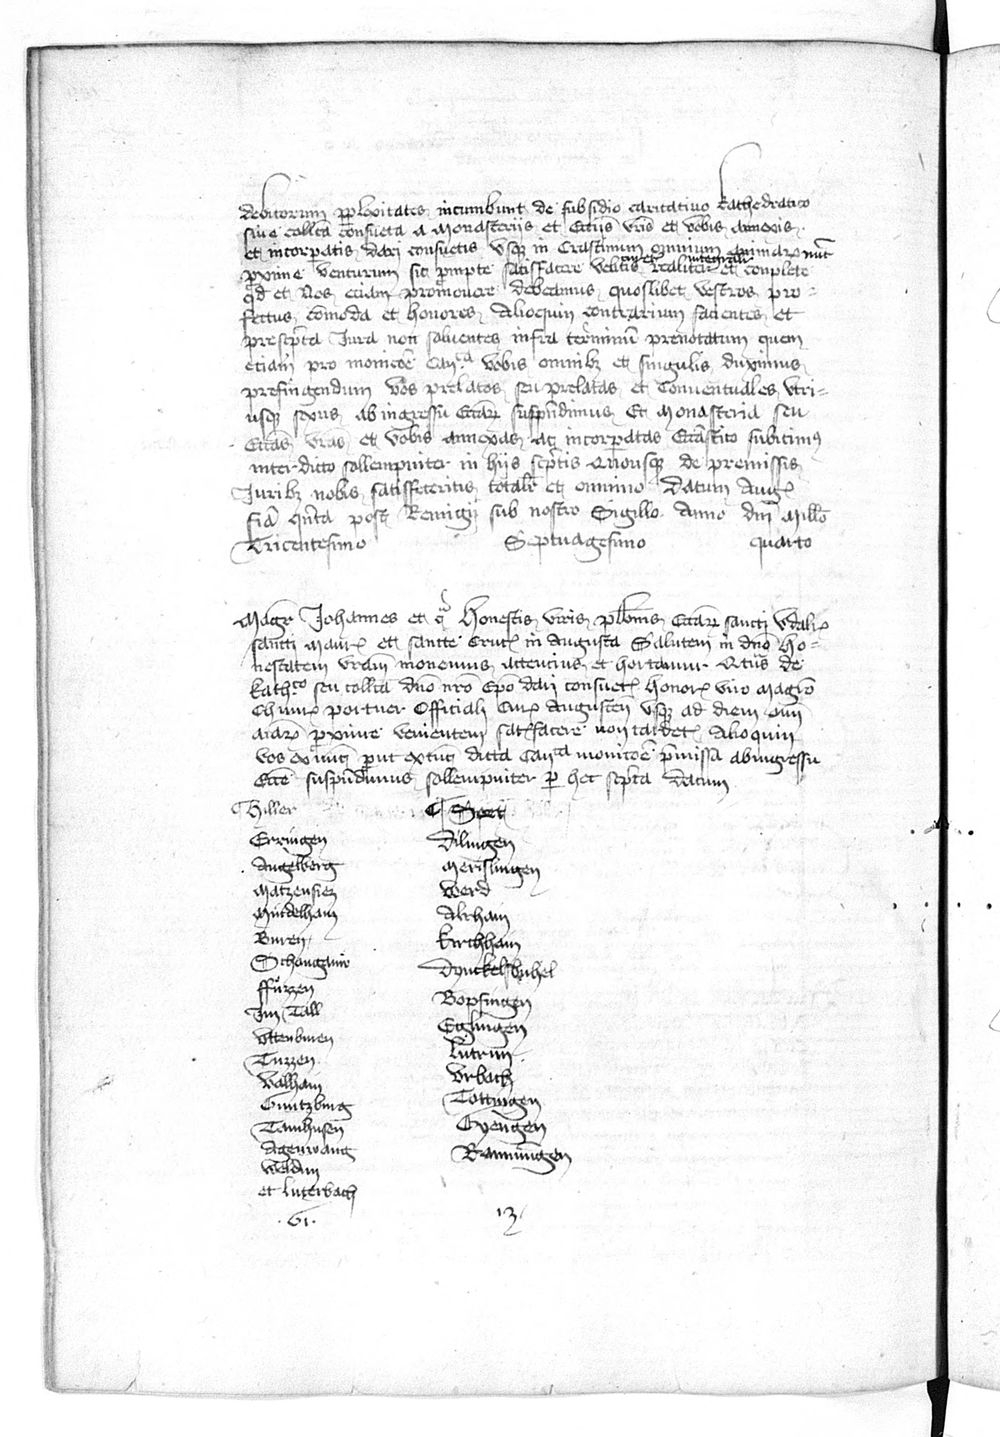 debitorum pplexitates incumbunt de subsidio caritativo kathedratico
sive collcta consueta a Monasteriis et Eccliis vris et vobis annexis
et incorpatis dari consuetis vsqz in Crastinum omnium animarum nunc
pxime venturum sic prompte satisfacere velitis realiter integraliter et complete
qd et Nos eciam promovere debeamus quoslibet vestros pro=
fectus comoda et honores Alioquin contrarium facientes et
prescpta Jura non solventes infra terminum prenotatum quem
eciam pro monicoe Canca vobis omnibz et singulis duximus
prefingendum vos prelatos seu prelatas et Conventuales vtri=
usqz sexus ab ingressu Eccliar suspendimus Et Monasteria seu
Ecclias vras et vobis annexas ac incorporatas Eccliastico subicimus
interdicto sollempniter in hijs scriptis Quousqz de premissis
Juribz nobis satisfeceritis totalr et omnino Datum Aug
feria qnta post Remigii sub nostro Sigillo Anno dni Millo
Tricentesimo Septuagesimo quarto
Magr Johannes et c Honestis viris plbnis Eccliar sancti Vdalr
sancti Maur et sancte Cruc in Augusta Salutem in dno Ho=
nestatem vram monemus attencius et hortamur Qtus de
kathco seu collcta dno nro Epo dari consuet honor viro Magro
Chunr portner Officiali Cur Augusten vsqz ad diem omi
aiar pxime venientem satisfacere non tardet Alioquin
vos ex nunc put extunc dicta Canca monicoe pmissa abingressu
Eccle suspendimus sollempniter p hec scpta Datum
Thiller
Erringen
Angelberg
Matzensiez
Mindelhain
Buren
Schongaw
ffuzzen
Im Tall
Vttenburen
Tuzzen
Balhain
Guntzburg
Tainhusen
Agenwang
Weldan
et Luterbach
. 61 .
Spet
Dilingen
Merslingen
Werd
Alrhain
kirchhain
Dynckelspuhel
Bopfingen
Eglingen
Lutrun
Vrbach
Tottingen
Gyengen
Ramungen
13